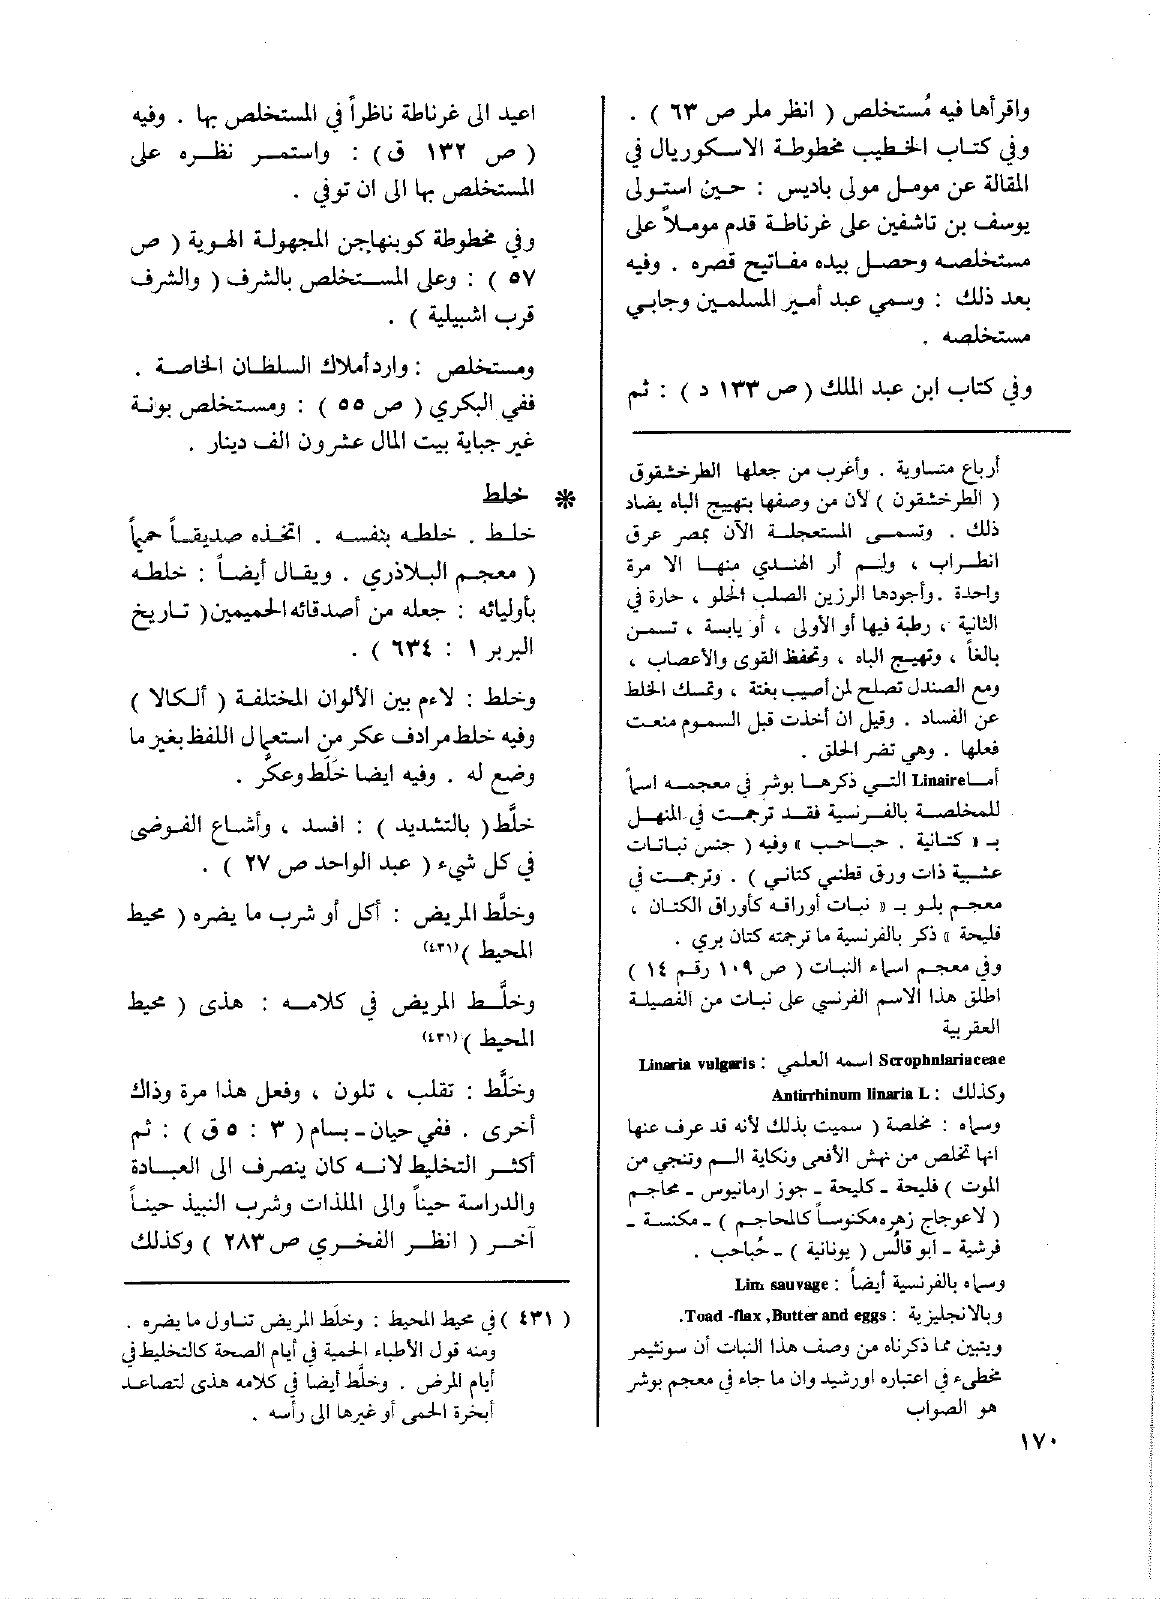 واقرأها فيه مُستخلص ( انظر ملر ص ٦٣ ) .
وفي كتاب الخطيب مخطوطة الاسكوريال في
المقالة عن مومل مولى باديس : حين استولى
يوسف بن تاشفين على غرناطة قدم موملاً على
مستخلصه وحصل بيده مفاتيح قصره . وفيه
بعد ذلك : وسمي عبد أمير المسلمين وجابي
مستخلصه .
وفي كتاب ابن عبد الملك ( ص ١٣٣ د ) : ثم
أرباع متساوية . وأغرب من جعلها الطرخشقوق
( الطرخشقون ) لأن من وصفها بتهييج الباه يضاد
ذلك . وتسمى المستعجلة الآن بمصر عرق
انطراب ، ولم أر الهندي منها الا مرة
واحدة . وأجودها الرزين الصلب الحلو ، حارة في
الثانية ، رطبة فيها أو الأولى ، أو يابسة ، تسمن
بالغاً ، وتهيج الباه ، وتحفظ القوى والأعصاب ،
ومع الصندل تصلح لمن أصيب بغتة ، وتمسك الخلط
عن الفساد . وقيل ان أخذت قبل السموم منعت
فعلها . وهي تضر الحلق .
أما Linaire التي ذكرها بوشر في معجمه اسماً
للمخلصة بالفرنسية فقد ترجمت في المنهل
بـ « كتانية . حباحب » وفيه ( جنس نباتات
عشبية ذات ورق قطني كتاني ) . وترجمت في
معجم بلو بـ « نبات أوراقه كأوراق الكتان ،
فليحة » ذكر بالفرنسية ما ترجمته كتان بري .
وفي معجم اسماء النبات ( ص ١٠٩ رقم ١٤ )
اطلق هذا الاسم الفرنسي على نبات من الفصيلة
العقربية
Scrophnlariaceae اسمه العلمي : Linaria vulgaris
وكذلك : Antirrhinum linaria L
وسماه : مخلصة ( سميت بذلك لأنه قد عرف عنها
انها تخلص من نهش الأفعى ونكاية السم وتنجي من
الموت ) فليحة - كليحة - جوز ارمانيوس - محاجم
( لاعوجاج زهره مكنوساً كالمحاجم ) - مكنسة -
قرشية - ابو قالُس ( يونانية ) - حُباحب .
وسماه بالفرنسية أيضاً : Lim sauvage
وبالانجليزية : Toad -flax ,Butter and eggs.
ويتبين مما ذكرناه من وصف هذا النبات أن سونثيمر
مخطىء في اعتباره اورشيد وان ما جاء في معجم بوشر
هو الصواب
اعيد الى غرناطة ناظراً في المستخلص بها . وفيه
( ص ١٣٢ ق ) : واستمر نظره على
المستخلص بها الى ان توفي .
وفي مخطوطة كوبنهاجن المجهولة الهوية ( ص
٥٧ ) : وعلى المستخلص بالشرف ( والشرف
قرب اشبيلية ) .
ومستخلص : وارد أملاك السلطان الخاصة .
ففي البكري ( ص ٥٥ ) : ومستخلص بونة
غير جباية بيت المال عشرون الف دينار .
* خلط
خلط . خلطه بنفسه . اتخذه صديقاً حميماً
( معجم البلاذري . ويقال أيضاً : خلطه
بأوليائه : جعله من أصدقائه الحميمين ( تاريخ
البربر ١ : ٦٣٤ ) .
وخلط : لاءم بين الألوان المختلفة ( ألكالا )
وفيه خلط مرادف عكر من استعمال اللفظ بغير ما
وضع له . وفيه ايضا خلَط وعكَّر .
خلَّط ( بالتشديد ) : افسد ، وأشاع الفوضى
في كل شيء ( عبد الواحد ص ٢٧ ) .
وخلَّط المريض : أكل أو شرب ما يضره ( محيط
المحيط ) (٤٣١)
وخلَّط المريض في كلامه : هذى ( محيط
المحيط ) (٤٣١)
وخلَّط : تقلب ، تلون ، وفعل هذا مرة وذاك
أخرى . ففي حيان - بسام ( ٣ : ٥ ق ) : ثم
أكثر التخليط لانه كان ينصرف الى العبادة
والدراسة حيناً والى الملذات وشرب النبيذ حيناً
آخر ( انظر الفخري ص ٢٨٣ ) وكذلك
( ٤٣١ ) في محيط المحيط : وخلَط المريض تناول ما يضره .
ومنه قول الأطباء الحمية في أيام الصحة كالتخليط في
أيام المرض . وخلَّط أيضا في كلامه هذى لتصاعد
أبخرة الحمى أو غيرها الى رأسه .
١٧٠